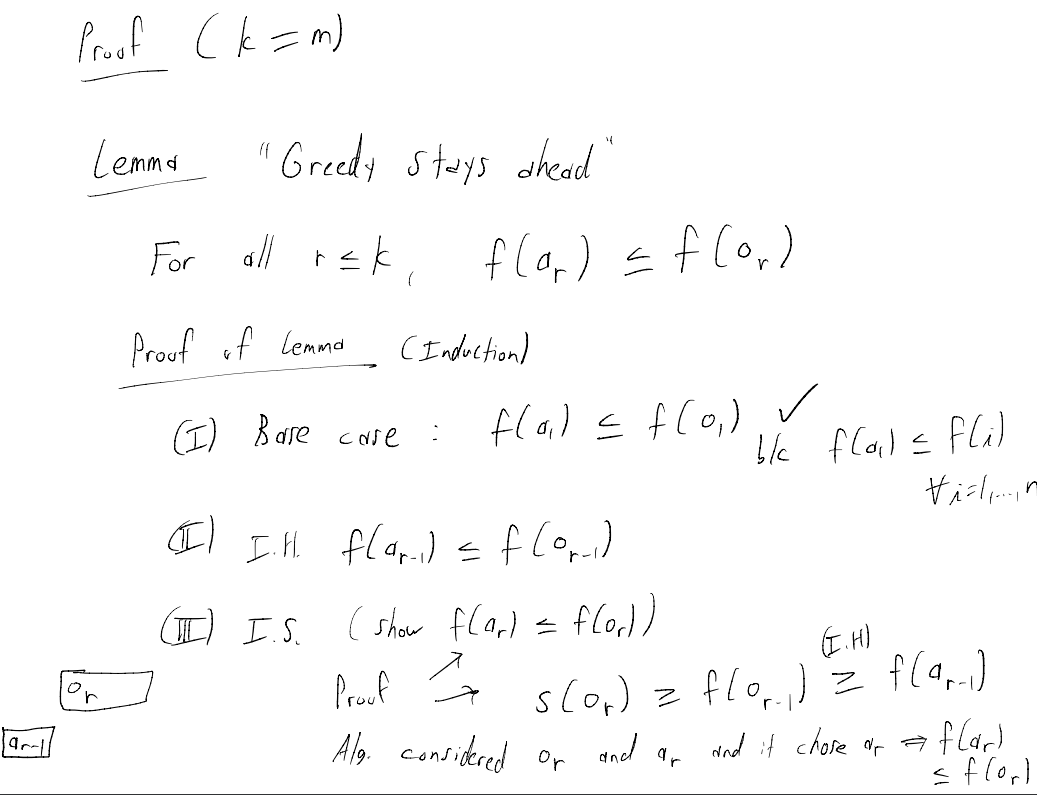 Proof (k = m)
Lemma "Greedy stays ahead"
For all r ≤ k, f(a_r) ≤ f(o_r)
Proof of Lemma (Induction)
(I) Base case : f(a_1) ≤ f(o_1) ✓ b/c f(a_1) ≤ f(i)
∀ i=1,...,n
(II) I.H. f(a_{r-1}) ≤ f(o_{r-1})
(III) I.S. (show f(a_r) ≤ f(o_r))
(I.H)
o_r Proof → s(o_r) ≥ f(o_{r-1}) ≥ f(a_{r-1})
a_{r-1} Alg. considered o_r and a_r and it chose a_r ⇒ f(a_r)
≤ f(o_r)